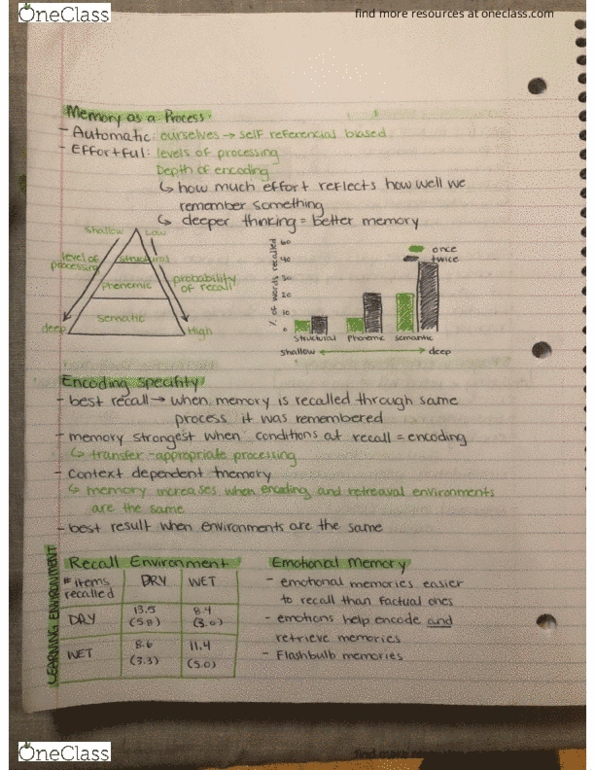 OneClass
find more resources at oneclass.com
Memory as a Process:
- Automatic: ourselves → self referencial biased
- Effortful: levels of processing
Depth of encoding
↳ how much effort reflects how well we
remember something
↳ deeper thinking = better memory
Shallow Low
level of processing
structural
phonemic
sematic
probability of recall
deep High
% of words recalled
60
40
30
20
10
0
once
twice
structural Phonemic semantic
shallow ← → deep
Encoding Specifity
- best recall → when memory is recalled through same
process it was remembered
- memory strongest when conditions at recall = encoding
↳ transfer-appropriate processing
- context dependent memory
↳ memory increases when encoding and retreaval environments
are the same
- best result when environments are the same
LEARNING ENVIRONMENT
Recall Environment
# items recalled DRY WET
DRY 13.5 (5.8) 8.4 (3.0)
WET 8.6 (3.3) 11.4 (5.0)
Emotional Memory
- emotional memories easier
to recall than factual ones
- emotions help encode and
retrieve memories
- Flashbulb memories
OneClass
find more